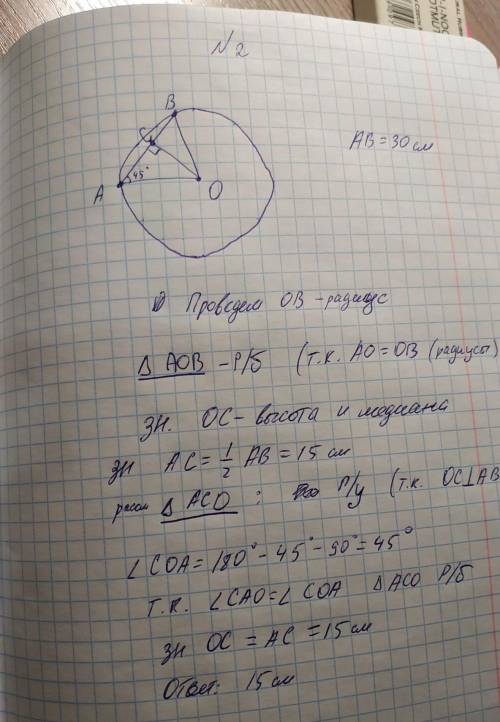 N2
B
C
A
45°
O
AB = 30 см
1) Проведем OB - радиус
Δ AOB - Р/б (т.к. AO = OB (радиусы)
зн. OC - высота и медиана
зн AC = 1/2 AB = 15 см
рассм Δ ACO : Р/у (т.к. OC⊥AB
∠COA = 180° - 45° - 90° = 45°
т.к. ∠CAO = ∠COA ΔACO Р/б
зн OC = AC = 15 см
Ответ: 15 см